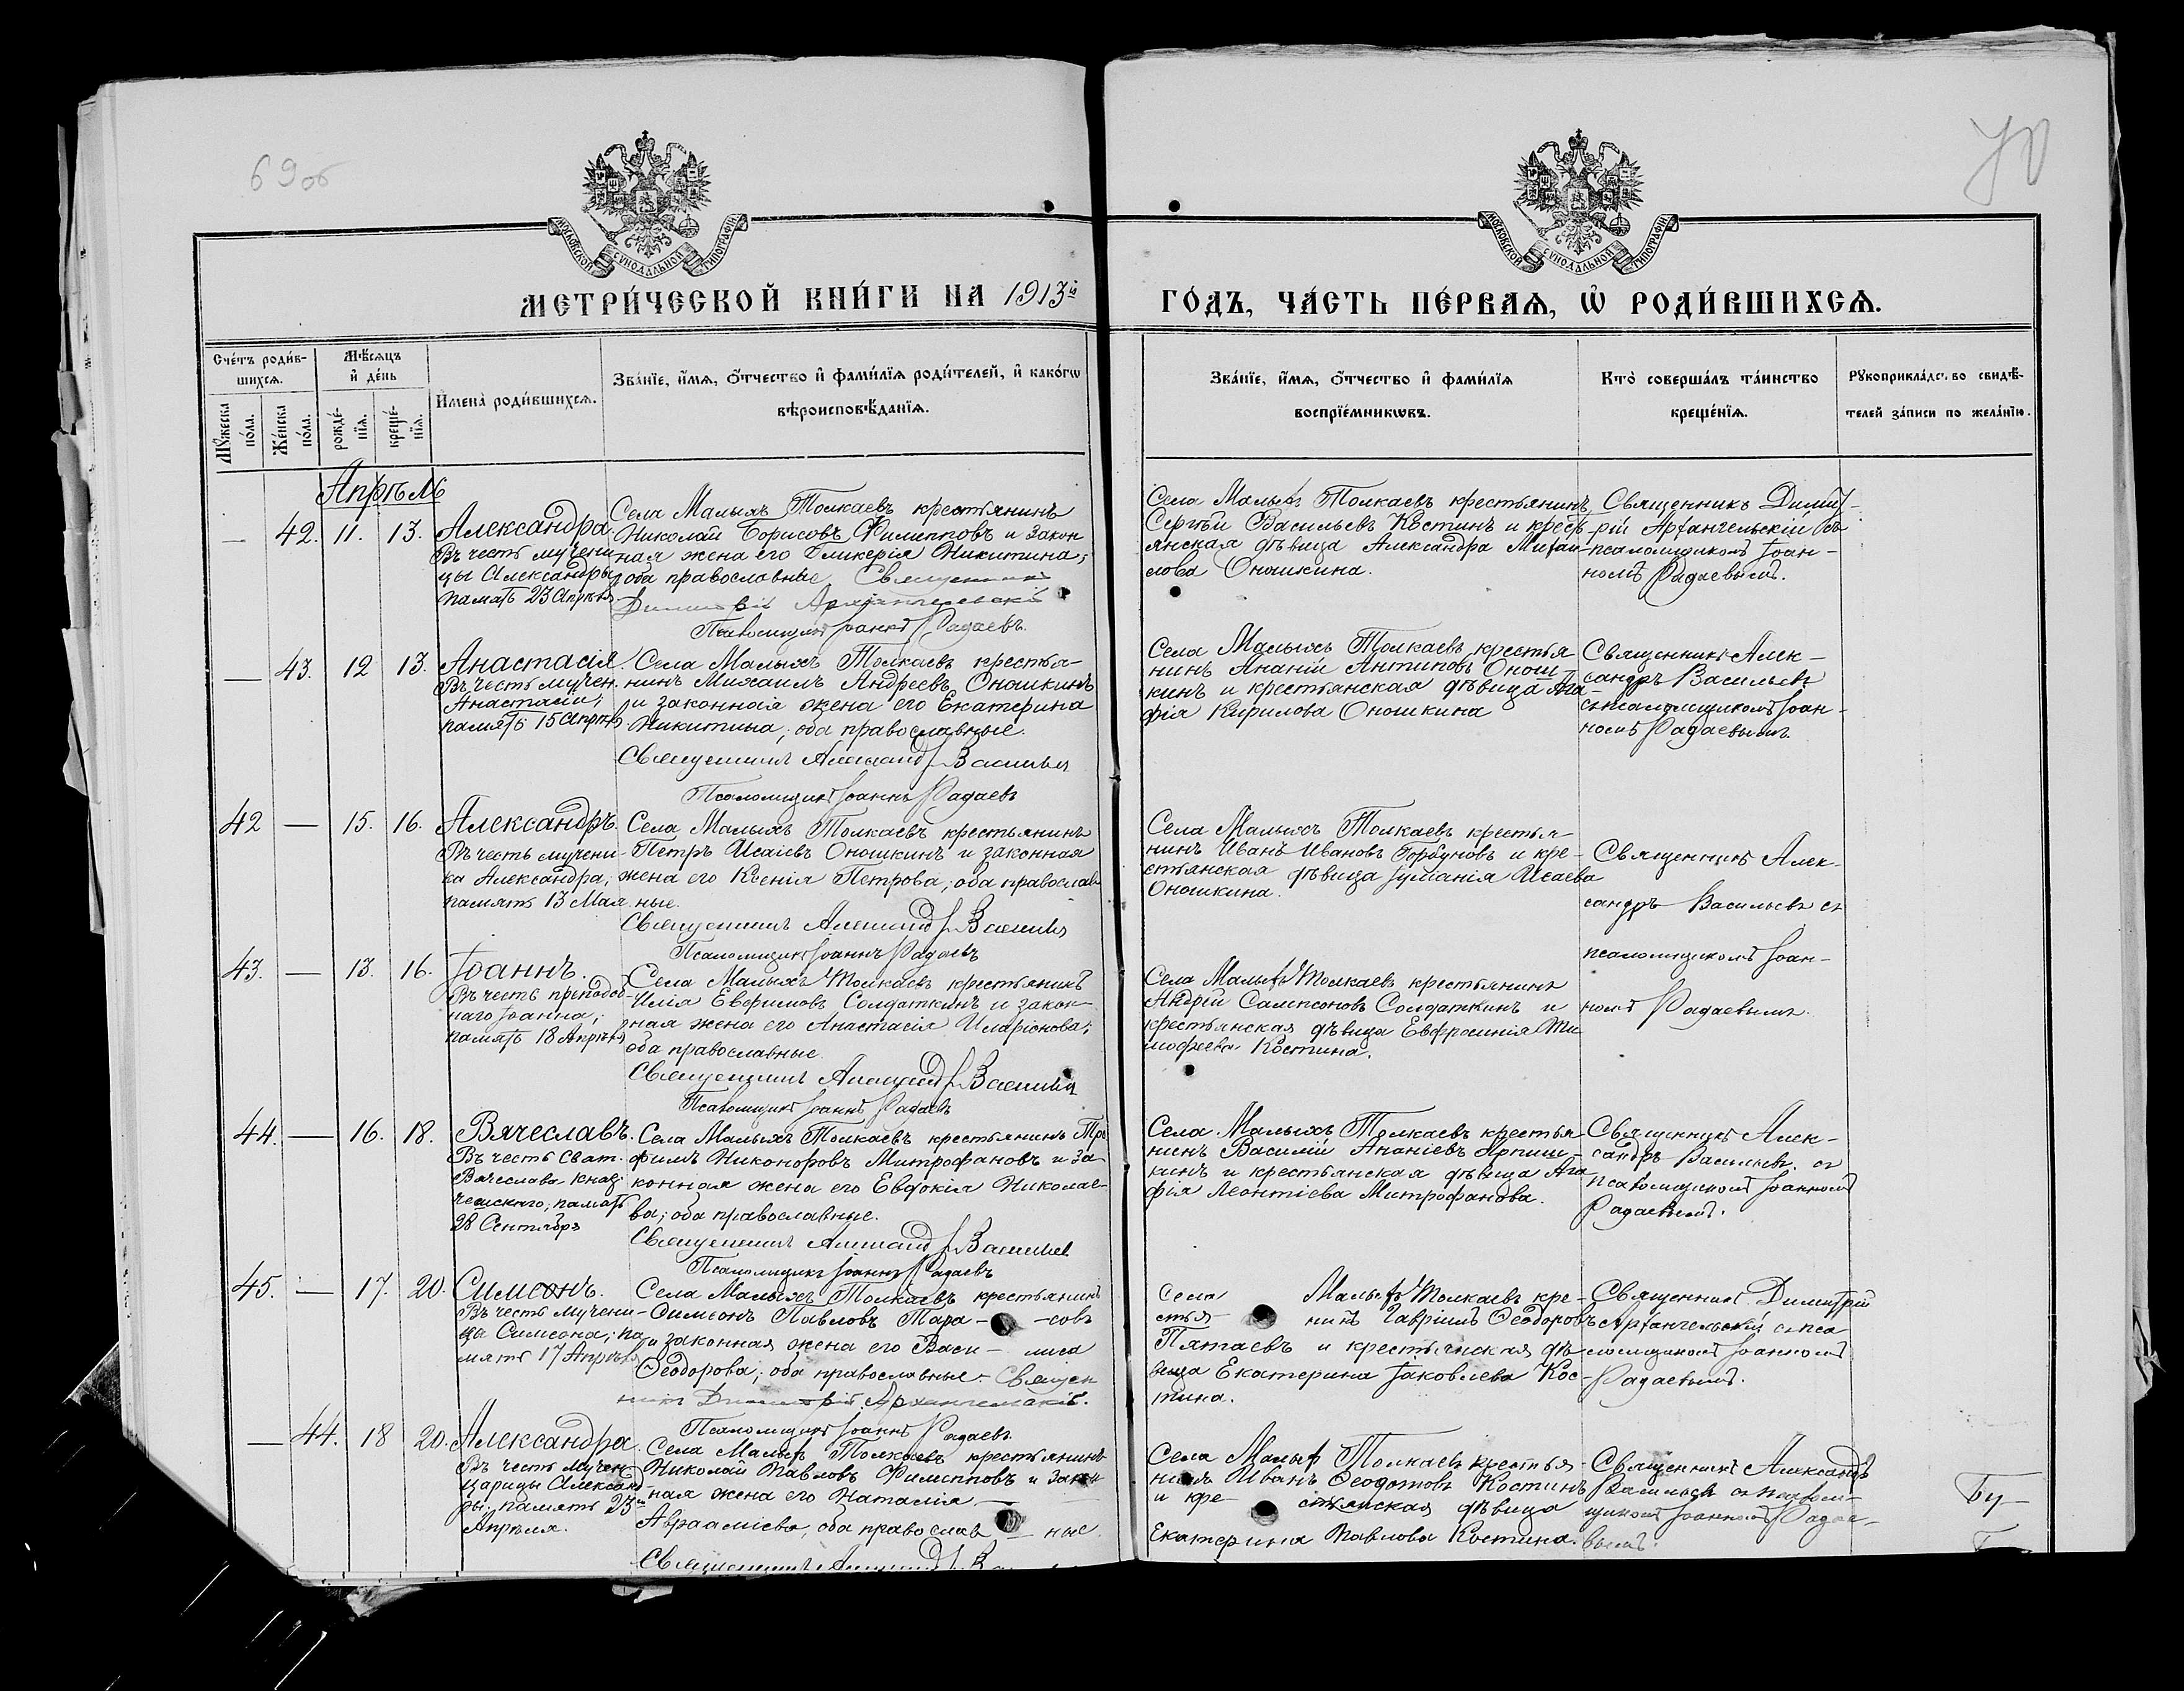 69об
70
МОСКОВСКОЙ СѴНОДАЛЬНОЙ ТИПОГРАФІИ
МОСКОВСКОЙ СѴНОДАЛЬНОЙ ТИПОГРАФІИ
МЕТРИ́ЧЕСКОЙ КНИ́ГИ НА 1913й
ГО́ДЪ, ЧА́СТЬ ПЕ́РВАЯ, Ѡ҆ РОДИ́ВШИХСЯ.
Сче́тъ роди́в-
шихся.
Мѣ́сяцъ
и҆ де́нь
Мꙋ́жеска
по́ла.
Же́нска
по́ла.
рожде́-
нїя.
креще́-
нїя.
И҆мена̀ роди́вшихся.
Зва́нїе, и҆́мя, ѻ҆́тчество и҆ фами́лїя роди́телей, и҆ како́гѡ
вѣроисповѣ́данїя.
Зва́нїе, и҆́мя, ѻ҆́тчество и҆ фами́лїя
воспрїе́мникѡвъ.
Кто̀ соверша́лъ та́инство
креще́нїя.
Рꙋкоприкла́дство свидѣ́-
телей за́писи по жела́нїю.
Апрѣль
— 42. 11. 13.
Александра
Въ честь мучени
цы Александры,
память 23 Апрѣля.
Села Малыхъ Толкаевъ крестьянинъ
Николай Борисовъ Филипповъ и закон
ная жена его Гликерія Никитина;
оба православные. Священникъ
Димитрій Архангельскій
Псаломщикъ Іоаннъ Радаевъ.
Села Малыхъ Толкаевъ крестьянинъ
Сергѣй Васильевъ Костинъ и кресть
янская дѣвица Александра Михаи-
лова Оношкина.
Священникъ Димит-
рій Архангельскій съ
псаломщикомъ Іоан-
номъ Радаевымъ.
— 43. 12 13.
Анастасія.
Въ честь мучен.
Анастасіи,
память 15 Апрѣля
Села Малыхъ Толкаевъ крестья-
нинъ Михаилъ Андреевъ Оношкинъ
и законная жена его Екатерина
Никитина; оба православные.
Священникъ Александръ Васильевъ
Псаломщикъ Іоаннъ Радаевъ
Села Малыхъ Толкаевъ крестья
нинъ Ананій Антиповъ Онош-
кинъ и крестьянская дѣвица Ага-
фія Кирилова Оношкина
Священникъ Алек-
сандръ Васильевъ
съ псаломщикомъ Іоан-
номъ Радаевымъ.
42 — 15. 16.
Александръ.
Въ честь мучени-
ка Александра;
память 13 Мая.
Села Малыхъ Толкаевъ крестьянинъ
Петръ Исаіевъ Оношкинъ и законная
жена его Ксенія Петрова; оба православ
ные.
Священникъ Александръ Васильевъ
Псаломщикъ Іоаннъ Радаевъ
Села Малыхъ Толкаевъ крестья-
нинъ Иванъ Ивановъ Горбуновъ и кре-
стьянская дѣвица Іуліанія Исаева
Оношкина.
Священникъ Алек-
сандръ Васильевъ съ
псаломщикомъ Іоан-
номъ Радаевымъ.
43. — 13. 16.
Іоаннъ.
Въ честь преподоб-
наго Іоанна;
память 18 Апрѣля
Села Малыхъ Толкаевъ крестьянинъ
Илія Евфимовъ Солдаткинъ и закон-
ная жена его Анастасія Иларіонова;
оба православные.
Священникъ Александръ Васильевъ
Псаломщикъ Іоаннъ Радаевъ
Села Малыхъ Толкаевъ крестьянинъ
Андрей Сампсоновъ Солдаткинъ и
крестьянская дѣвица Евфросинія Ти
мофеева Костина.
44. — 16. 18.
Вячеславъ.
Въ честь Свят.
Вячеслава княз.
чешскаго; память
28 Сентября
Села Малыхъ Толкаевъ крестьянинъ Тро
фимъ Никоноровъ Митрофановъ и за-
конная жена его Евдокія Николае-
ва; оба православные.
Священникъ Александръ Васильевъ
Псаломщикъ Іоаннъ Радаевъ
Села Малыхъ Толкаевъ крестья
нинъ Василій Ананіевъ
кинъ и крестьянская дѣвица Ага
фія Леонтіева Митрофанова.
Священникъ Алек-
сандръ Васильевъ съ
псаломщикомъ Іоанномъ
Радаевымъ.
45. — 17. 20.
Симеонъ.
Въ честь мучени-
ка Симеона; па
мять 17 Апрѣля
Села Малыхъ Толкаевъ крестьянинъ
Симеонъ Павловъ Тара- -совъ
и законная жена его Васи- лиса
Ѳеодорова; оба православные. Священ
никъ Димитрій Архангельскій.
Псаломщикъ Іоаннъ Радаевъ.
Села Малыхъ Толкаевъ кре-
стья- нинъ Гавріилъ Ѳеодоровъ
Пятаевъ и крестьянская дѣ-
вица Екатерина Іаковлева Кос-
тина.
Священникъ Димитрій
Архангельскій съ пса
ломщикомъ Іоанномъ
Радаевымъ.
— 44. 18 20.
Александра.
Въ честь мучен.
Царицы Александ
ры; память 23го
Апрѣля.
Села Малыхъ Толкаевъ крестьянинъ
Николай Павловъ Филипповъ и закон
ная жена его Наталія —
Авраамієва, оба православ — ные.
Священникъ Александръ
Села Малыхъ Толкаевъ крестья-
нинъ Иванъ Ѳеодотовъ Костинъ
и кре- стьянская дѣвица
Екатерина Павлова Костина.
Священникъ Александръ
Васильевъ съ псалом-
щикомъ Іоанномъ Радае-
вымъ.